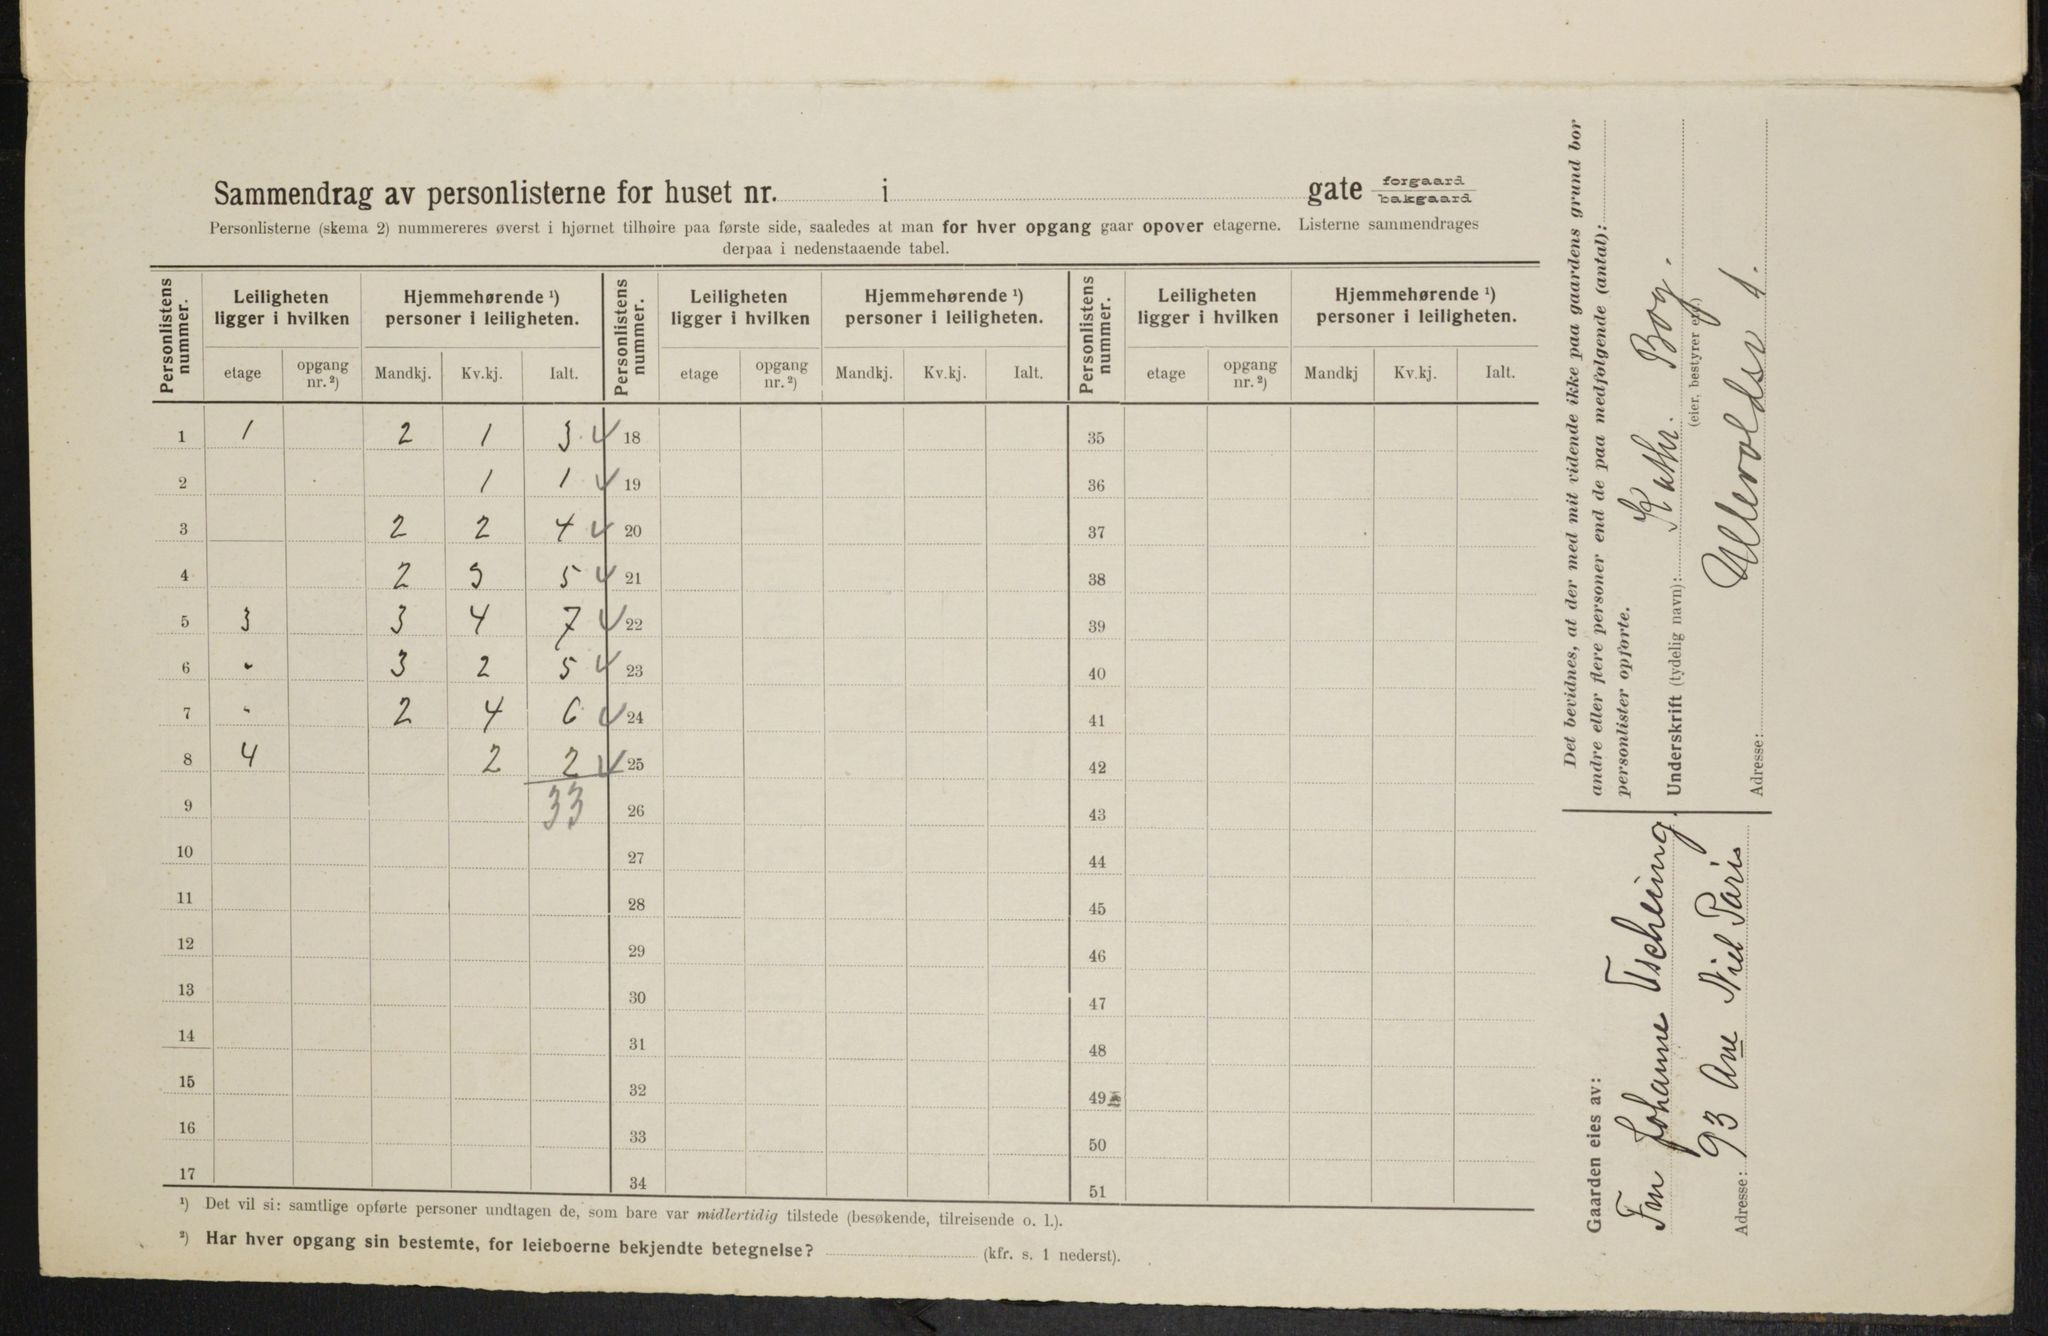 Sammendrag av personlisterne for huset nr. i gate forgaard bakgaard
Personlisterne (skema 2) nummereres øverst i hjørnet tilhøire paa første side, saaledes at man for hver opgang gaar opover etagerne. Listerne sammendrages
derpaa i nedenstaaende tabel.
Personlistens nummer. Leiligheten ligger i hvilken Hjemmehørende ¹) personer i leiligheten. Personlistens nummer. Leiligheten ligger i hvilken Hjemmehørende ¹) personer i leiligheten. Personlistens nummer. Leiligheten ligger i hvilken Hjemmehørende ¹) personer i leiligheten.
etage opgang nr. ²) Mandkj. Kv.kj. Ialt. etage opgang nr. ²) Mandkj. Kv.kj. Ialt. etage opgang nr. ²) Mandkj Kv.kj. Ialt.
1 1 2 1 3 18 35
2 1 1 19 36
3 2 2 4 20 37
4 2 3 5 21 38
5 3 3 4 7 22 39
6 " 3 2 5 23 40
7 " 2 4 6 24 41
8 4 2 2 25 42
9 33 26 43
10 27 44
11 28 45
12 29 46
13 30 47
14 31 48
15 32 49
16 33 50
17 34 51
¹) Det vil si: samtlige opførte personer undtagen de, som bare var midlertidig tilstede (besøkende, tilreisende o. l.).
²) Har hver opgang sin bestemte, for leieboerne bekjendte betegnelse? (kfr. s. 1 nederst).
Det bevidnes, at der med mit vidende ikke paa gaardens grund bor
andre eller flere personer end de paa medfølgende (antal):
personlister opførte.
Underskrift (tydelig navn): Kathr. Bog.
(eier, bestyrer etc.)
Adresse: Ullevoldsv 1.
Gaarden eies av:
Fru Johanne Tscherning.
Adresse: 93 Ave Niel Paris